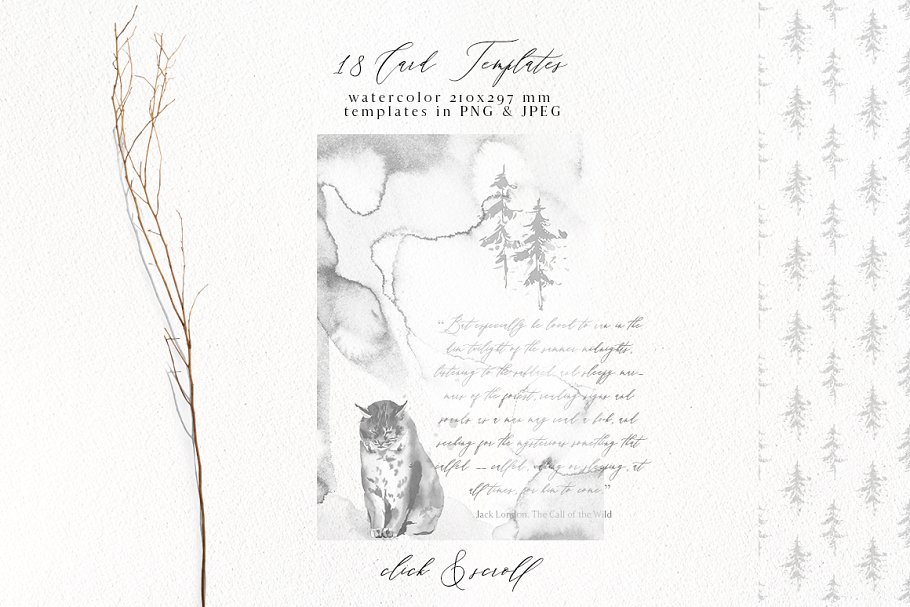 18 Card Templates
watercolor 210x297 mm
templates in PNG & JPEG
“But especially he loved to run in the
dim twilight of the summer midnights,
listening to the subdued and sleepy mur-
murs of the forest, reading signs and
sounds as a man may read a book, and
seeking for the mysterious something that
called -- called, waking or sleeping, at
all times, for him to come.”
Jack London, The Call of the Wild
click & scroll